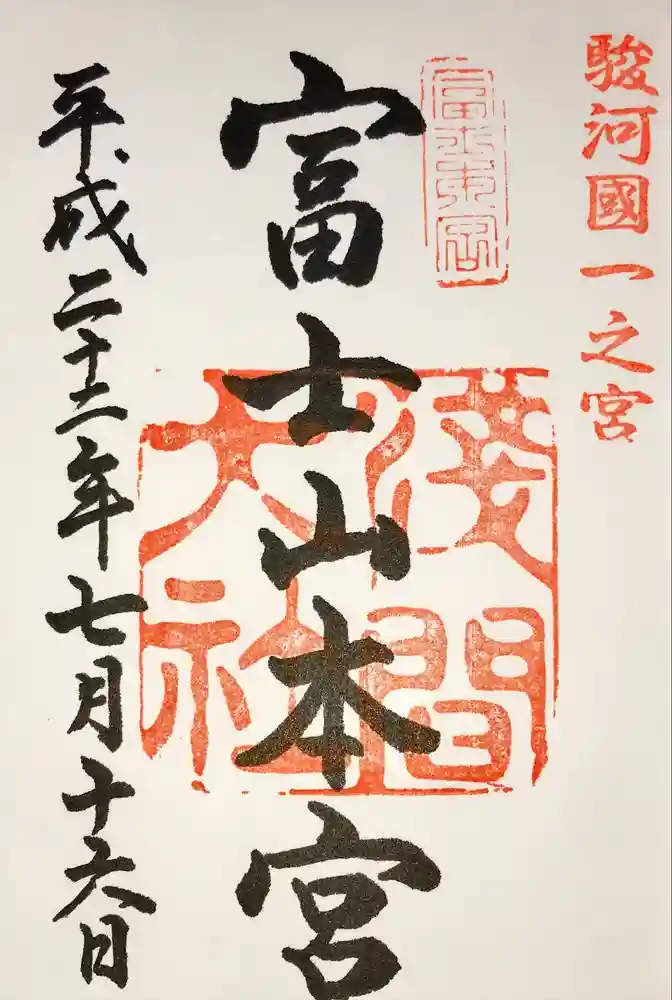 駿河國一之宮
富士本宮
富士山本宮
淺間大社
平成二十二年七月十六日